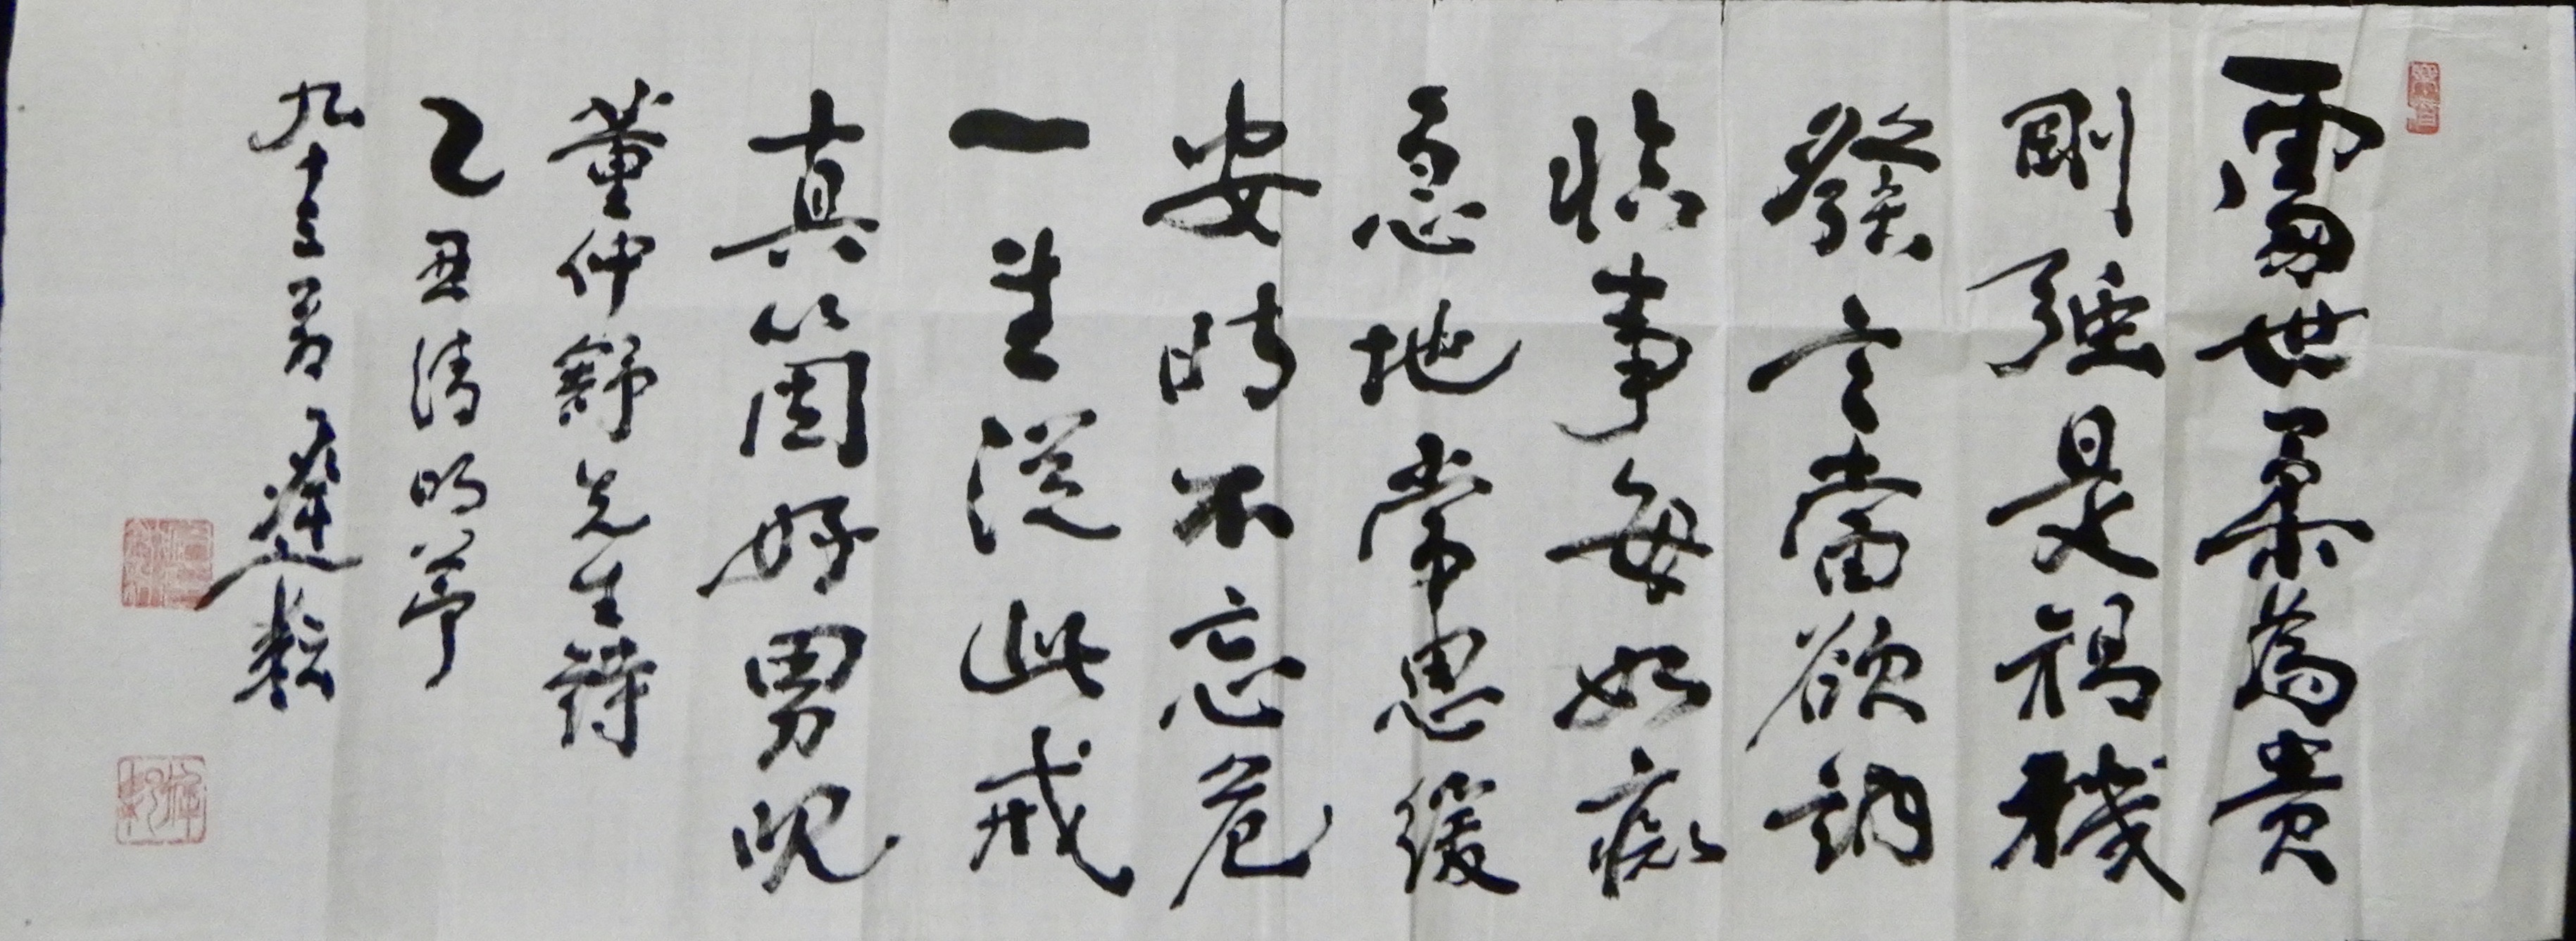 處世柔為貴
剛強是禍機
發言當欲訥
臨事每如癡
急地常思緩
安時不忘危
一生從此戒
真箇好男兒
董仲舒先生詩
乙丑清明節
九十